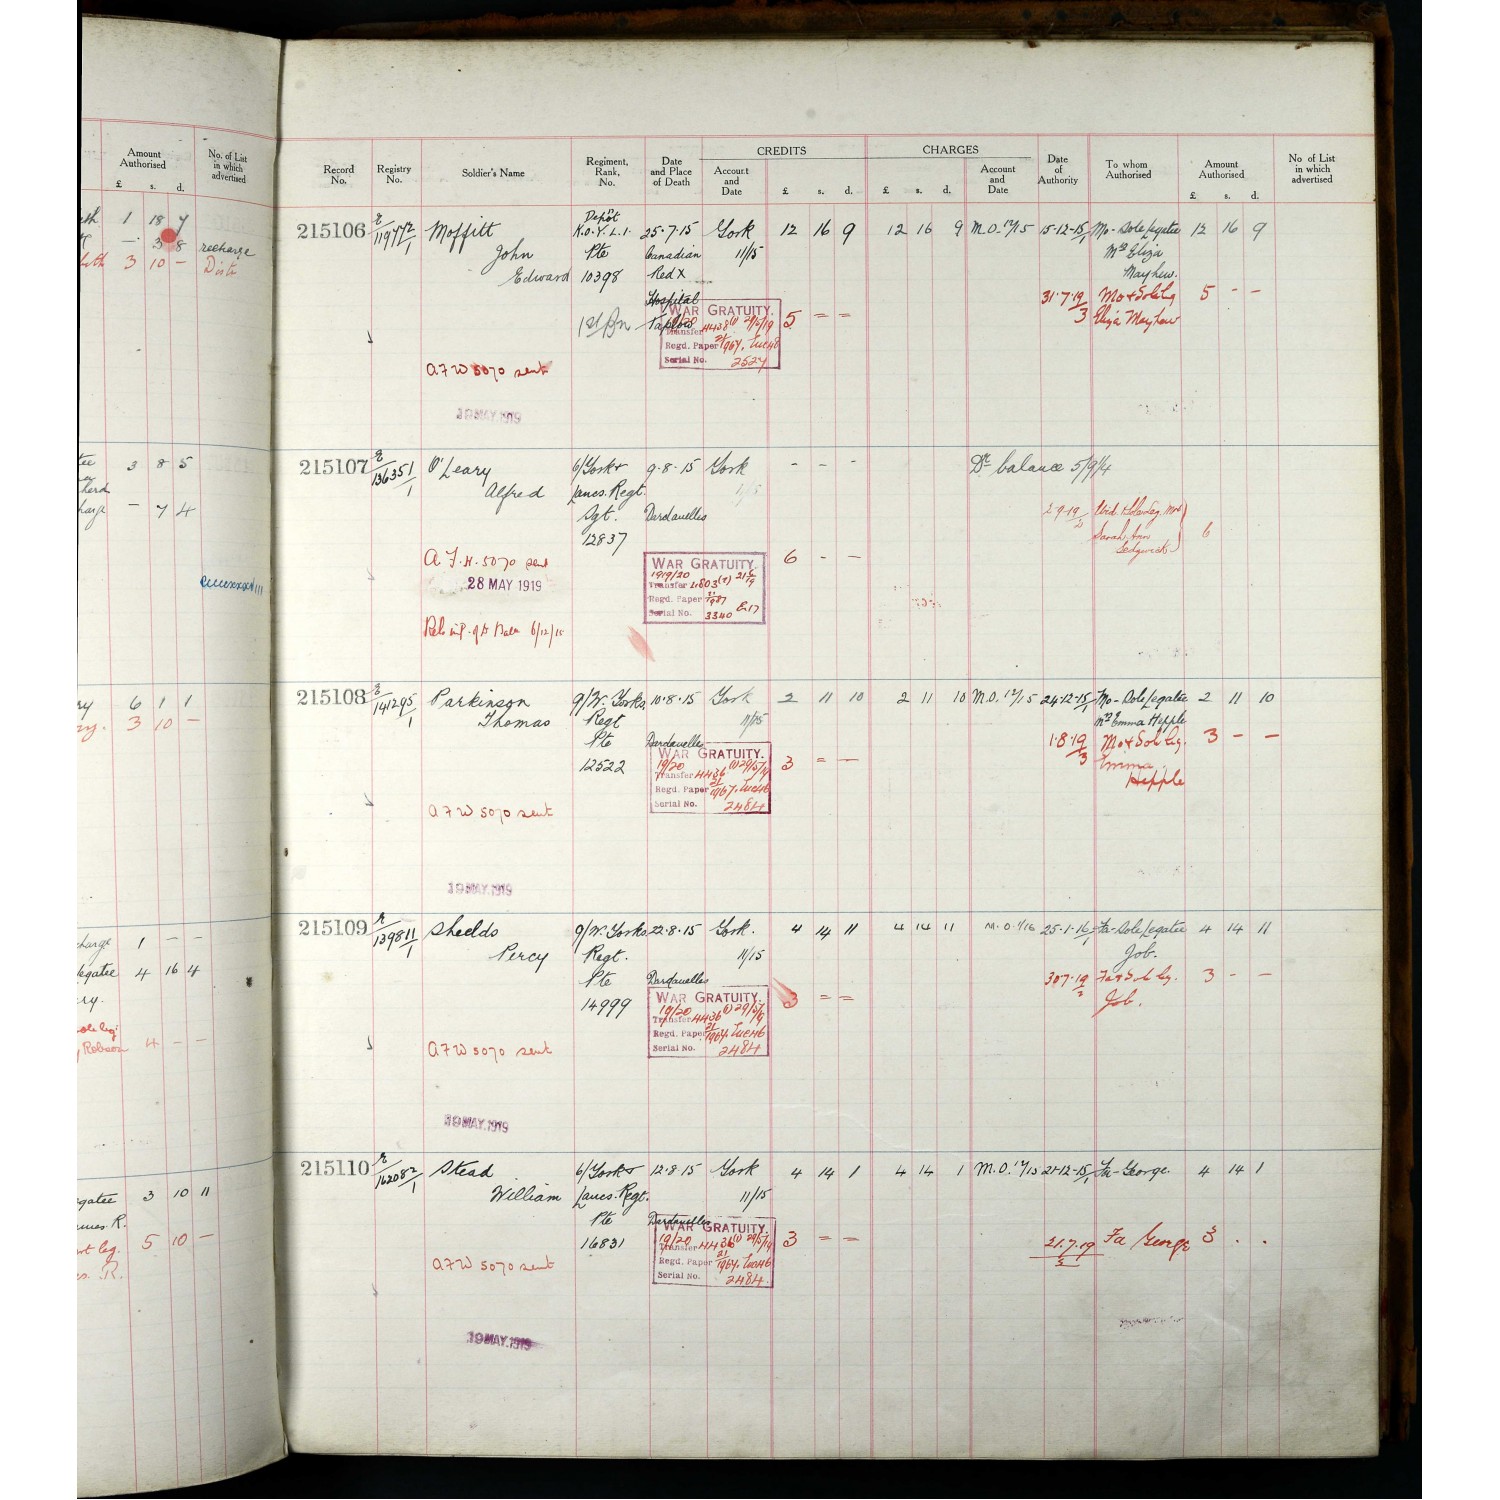 Amount Authorised
No. of List in which advertised
£ s. d.
1 18 7
3 8 recharge
3 10 — Dist
3 8 5
— 7 4
6 1 1
3 10 —
charge 1 — —
legatee 4 16 4
Robson 4 — —
legatee 3 10 11
James R.
5 10 —
Record No.
Registry No.
Soldier's Name
Regiment, Rank, No.
Date and Place of Death
CREDITS
Account and Date
£ s. d.
CHARGES
£ s. d.
Account and Date
Date of Authority
To whom Authorised
Amount Authorised
£ s. d.
No of List in which advertised
215106 E/119772/1 Moffitt Depôt K.O.Y.L.I. 25.7.15 York 12 16 9 12 16 9 M.O. 12/15 15-12-15/1 Mo-Sole Legatee 12 16 9
John Pte Canadian 11/15 Mrs Eliza
Edward 10398 Red X Mayhew.
Hospital 31.7.19/3 Mo + Sole Leg 5 - -
1st Bn Taplow 5 = = Eliza Mayhew
WAR GRATUITY.
19/20
Transfer 4438(1) 29/5/19
Regd. Paper 21/1967.
Serial No. 2527
AFW 5070 sent
19 MAY.1919
215107 E/136351/1 O'Leary 6/York & 9.8.15 York - - - Dr balance 5/9/4
Alfred Lancs. Regt. 11/15
Sgt. Dardanelles
12837
2.9.19/2 Wid + Sole Leg Mrs Sarah Ann Sedgwick 6
A.F.W. 5070 sent
28 MAY 1919
6 - -
WAR GRATUITY.
1919/20
Transfer 4803(1)
Regd. Paper 21/1987
Serial No. 3340 E17
6/12/15
215108 E/141295/1 Parkinson 9/W. Yorks. 10.8.15 York 2 11 10 2 11 10 M.O. 12/15 24-12-15/1 Mo-Sole Legatee 2 11 10
Thomas Regt 11/15 Mrs Emma Hepple
Pte Dardanelles 1.8.19/3 Mo + Sole Leg. 3 - -
12522 3 = — Emma Hepple
WAR GRATUITY.
19/20
Transfer 4436(1) 29/5/19
Regd. Paper 21/1967.
Serial No. 2484
AFW 5070 sent
19 MAY.1919
215109 E/139811/1 Shields 9/W. Yorks 22.8.15 York. 4 14 11 4 14 11 M.O. 1/16 25-1-16/1 Fa-Sole Legatee 4 14 11
Percy Regt. 11/15 Job.
Pte Dardanelles 30.7.19/2 Fa + Sole Leg. 3 - -
14999 3 = = Job.
WAR GRATUITY.
19/20
Transfer 4436(1) 29/5/19
Regd. Paper 21/1967.
Serial No. 2484
AFW 5070 sent
19 MAY.1919
215110 E/162082/1 Stead 6/York & 12.8.15 York 4 14 1 4 14 1 M.O. 12/15 21-12-15/1 Fa-George. 4 14 1
William Lancs. Regt. 11/15
Pte Dardanelles
16831 3 = = 21.7.19 Fa George 3 . .
WAR GRATUITY.
19/20
Transfer 4436(1) 29/5/19
Regd. Paper 21/1967.
Serial No. 2484.
AFW 5070 sent
19 MAY.1919